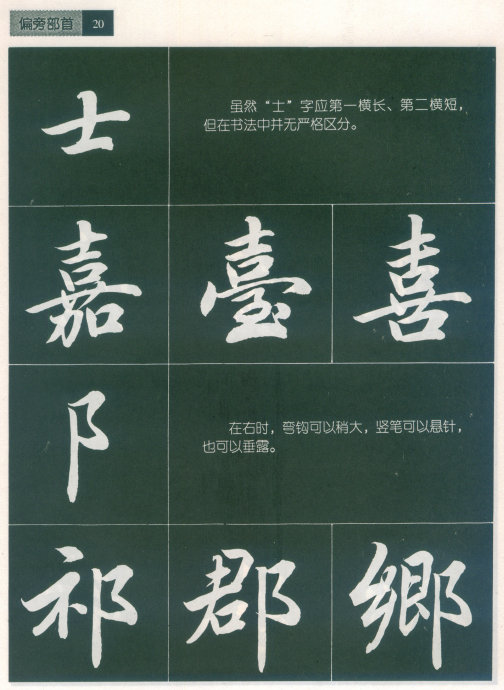 偏旁部首 20
士
虽然“士”字应第一横长、第二横短，
但在书法中并无严格区分。
嘉 臺 喜
阝
在右时，弯钩可以稍大，竖笔可以悬针，
也可以垂露。
祁 郡 鄉